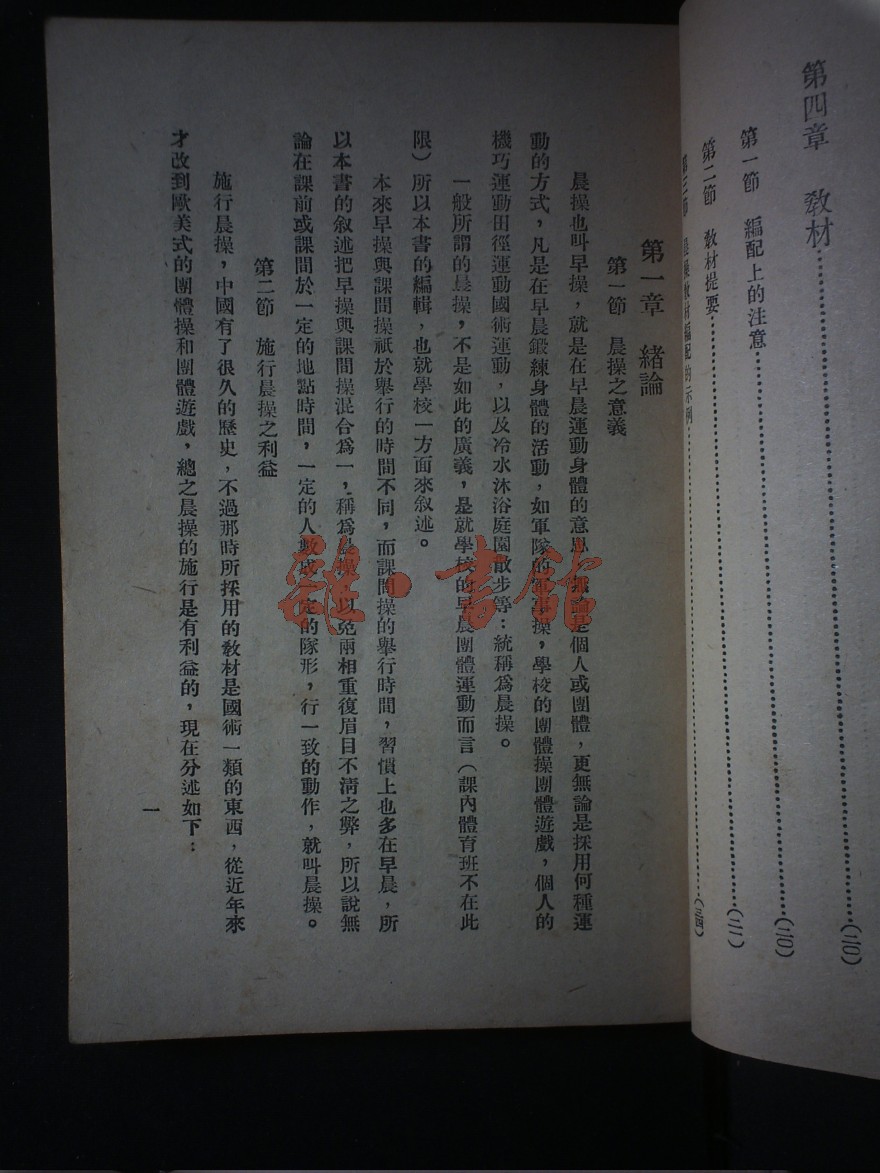 第四章 教材……(二〇)
第一節 編配上的注意……(二〇)
第二節 教材提要……(二一)
第三節 晨操教材編配的示例……(三四)
第一章 緒論
第一節 晨操之意義
晨操也叫早操，就是在早晨運動身體的意思，無論是個人或團體，更無論是採用何種運
動的方式，凡是在早晨鍛練身體的活動，如軍隊的軍事操，學校的團體操團體遊戲，個人的
機巧運動田徑運動國術運動，以及冷水沐浴庭園散步等：統稱爲晨操。
一般所謂的晨操，不是如此的廣義，是就學校的早晨團體運動而言（課內體育班不在此
限）所以本書的編輯，也就學校一方面來叙述。
本來早操與課間操祇於舉行的時間不同，而課間操的舉行時間，習慣上也多在早晨，所
以本書的叙述把早操與課間操混合爲一，稱爲晨操，以免兩相重復眉目不淸之弊，所以說無
論在課前或課間於一定的地點時間，一定的人數成一定的隊形，行一致的動作，就叫晨操。
第二節 施行晨操之利益
施行晨操，中國有了很久的歷史，不過那時所採用的教材是國術一類的東西，從近年來
才改到歐美式的團體操和團體遊戲，總之晨操的施行是有利益的，現在分述如下：
一
雜·書館